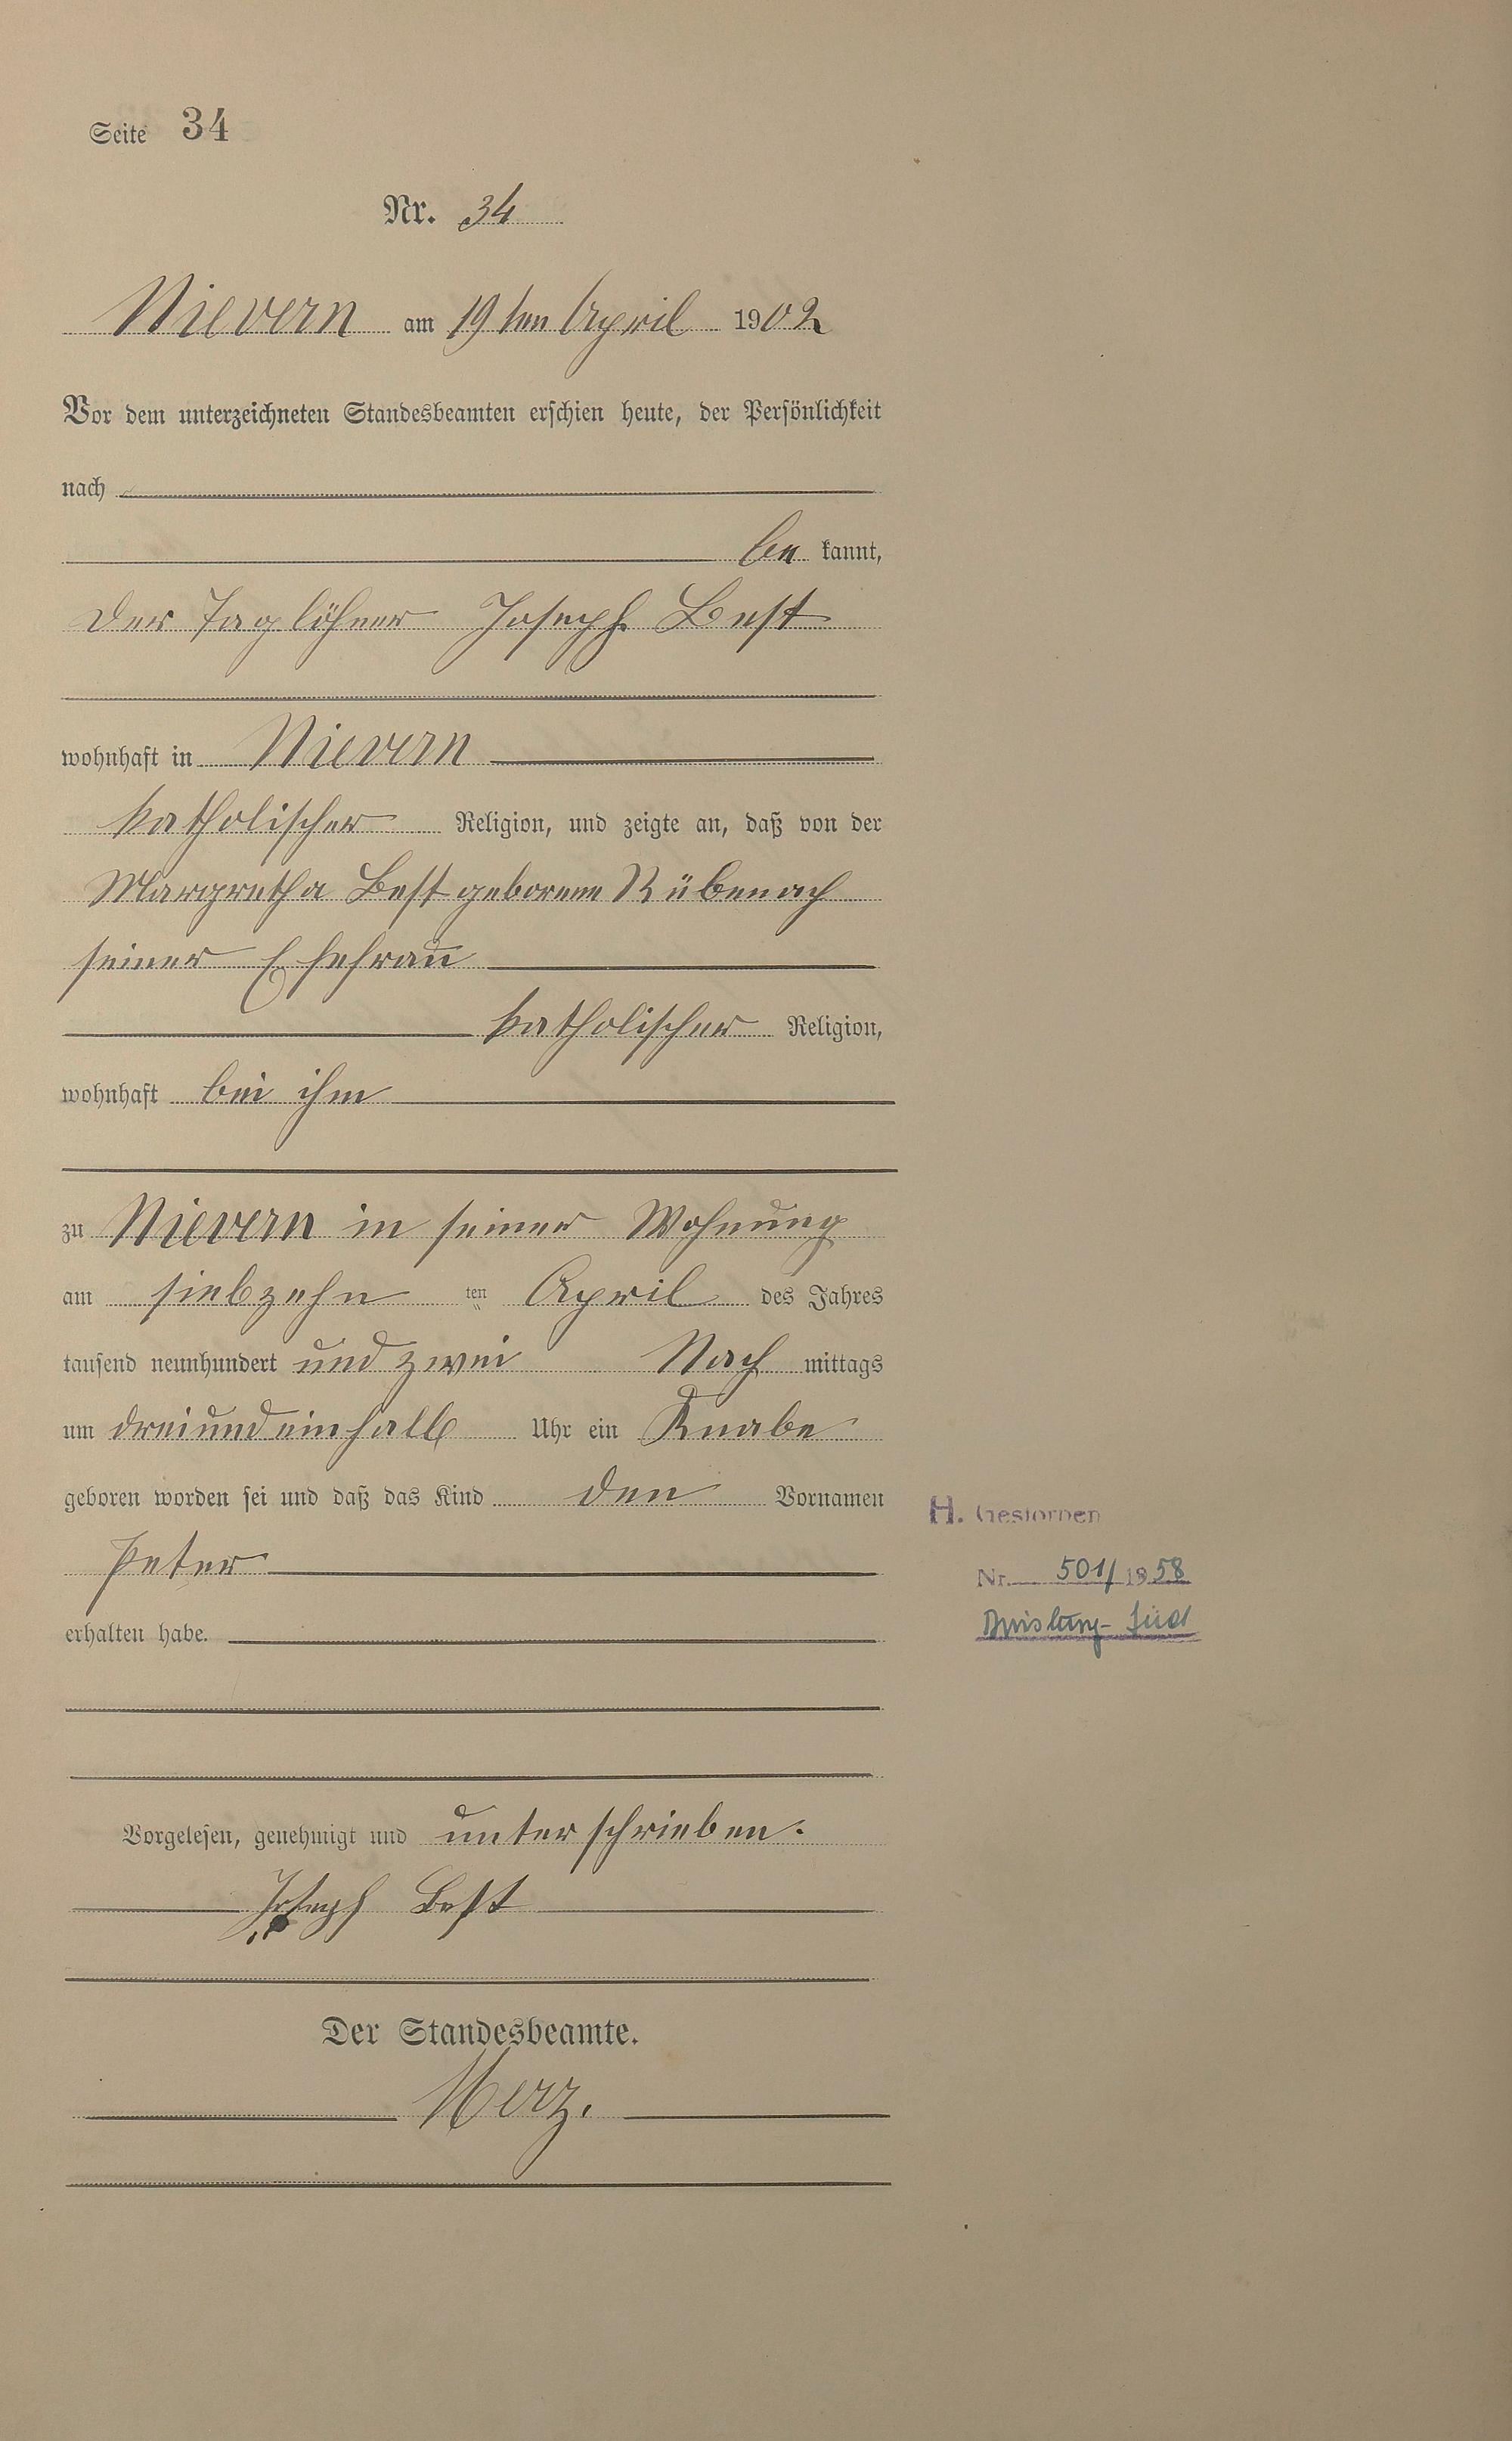 Seite 34
Nr. 34
Nievern am 19ten April 1902
Vor dem unterzeichneten Standesbeamten erschien heute, der Persönlichkeit
nach
be kannt,
der Taglöhner Joseph Best
wohnhaft in Nievern
katholischer Religion, und zeigte an, daß von der
Margretha Best geborene Rübenach
seiner Ehefrau
katholischer Religion,
wohnhaft bei ihm
zu Nievern in seiner Wohnung
am siebzehn ten April des Jahres
tausend neunhundert und zwei Nach mittags
um dreiundeinhalb Uhr ein Knabe
geboren worden sei und daß das Kind den Vornamen
Peter
erhalten habe.
Vorgelesen, genehmigt und unterschrieben.
Joseph Best
Der Standesbeamte.
Merz.
H. Gestorben
Nr. 501/1958
Duisburg-Süd